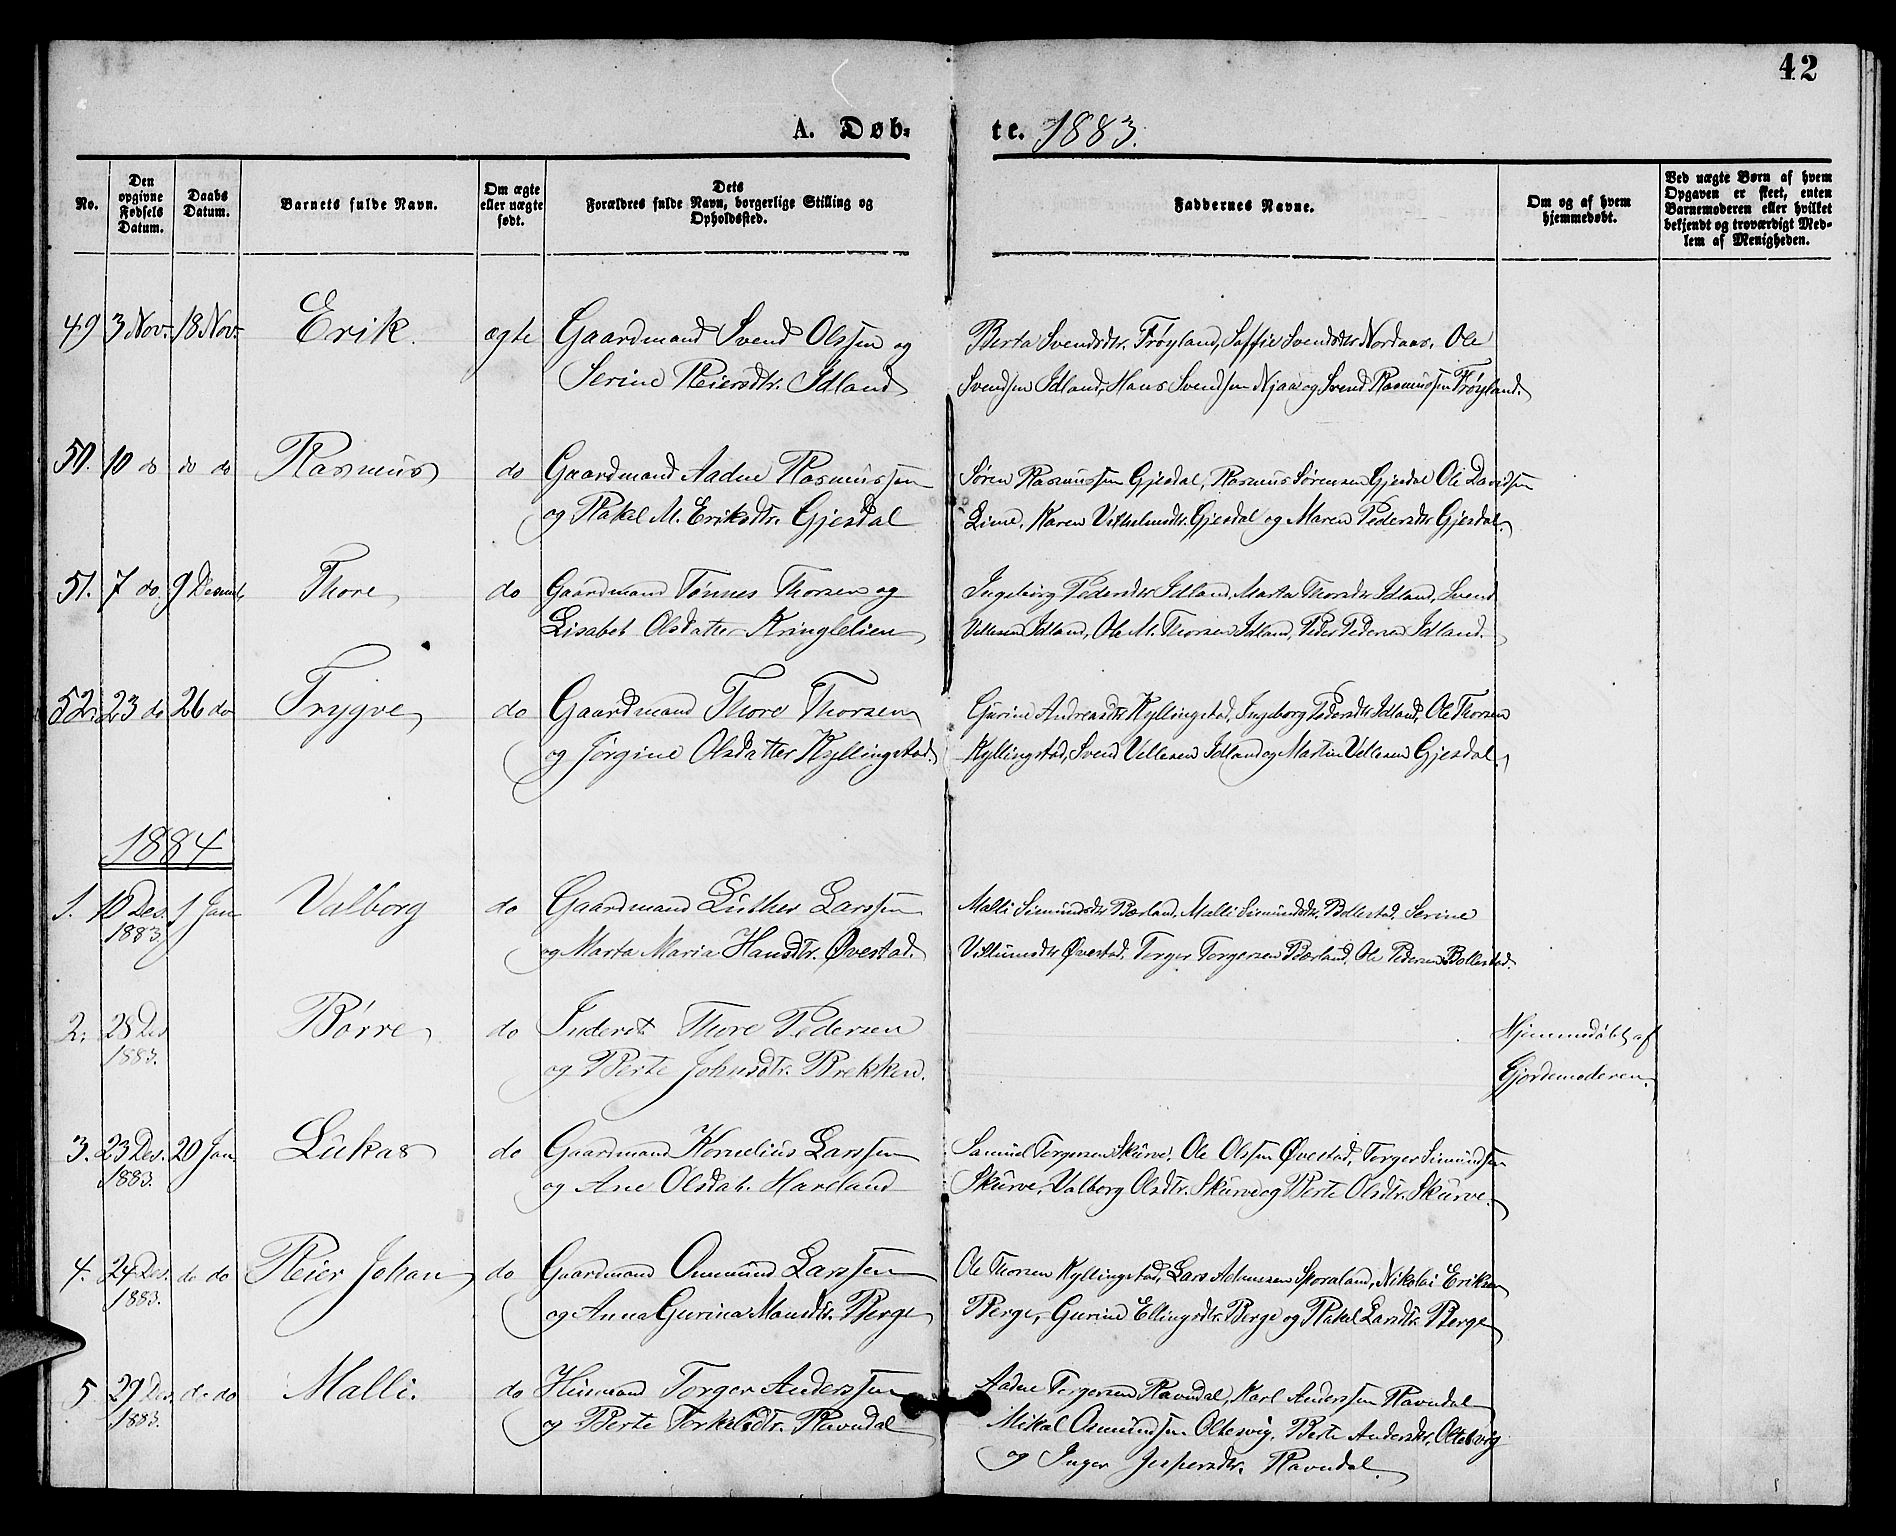 42
A. Døb- te. 1883.
No.
Den opgivne Fødsels Datum.
Daabs Datum.
Barnets fulde Navn.
Om ægte eller uægte født.
Dets Forældres fulde Navn, borgerlige Stilling og Opholdssted.
Faddernes Navne.
Om og af hvem hjemmedøbt.
Ved uægte Børn af hvem Opgaven er skeet, enten Barnemoderen eller hvilket bekjendt og troværdigt Medlem af Menigheden.
49 3 Nov. 18 Nov. Erik. ægte Gaardmand Svend Olssen og Berta Svendsdtr. Frøyland, Soffie Svendsdtr Nordaas, Ole
Serine Reiersdtr. Idland Svendsen Idland, Hans Svendsen Njaa og Svend Rasmussen Frøyland.
50. 10 do do do Rasmus do Gaardmand Aadne Rasmussen Søren Rasmussen Gjesdal, Rasmus Sørensen Gjesdal Ole Davidsen
og Rakel M. Eriksdtr. Gjesdal Lime, Karen Vilhelmsdtr. Gjesdal og Maren Pedersdtr Gjesdal.
51. 7 do. 9 Desemb. Thore do Gaardmand Tønnes Thorsen og Ingeborg Pedersdtr Idland, Marta Thorsdtr Idland, Svend
Lisabet Olsdatter Kringlelien Villesen Idland, Ole M. Thorsen Idland, Peder Pedersen Idland.
52. 23 do 26 do Trygve do Gaardmand Thore Thorsen Gurine Andreasdtr Kyllingstad, Ingeborg Pedersdtr Idland, Ole Thorsen
og Jørgine Olsdatter Kyllingstad. Kyllingstad, Svend Villesen Idland og Martin Villesen Gjesdal.
1884
1. 10 Des. 1 Jan Valborg do Gaardmand Luther Larssen Malli Simundsdtr Bærland, Malli Simundsdtr. Bollestad, Serine
1883 og Marta Maria Hansdtr. Øvestad. Øvestad, Torger Torgersen Bærland, Ole Pedersen Bollestad.
2. 28 Des Børre do Inderst Thore Pedersen Hjemmedøbt af
1883. og Berte Johnsdtr. Brekken. Gjordemoderen.
3. 23 Des. 20 Jan Lukas do Gaardmand Kornelius Larssen Samuel Torgersen Skurve, Ole Olssen Øvestad, Torger Simundsen
1883. og Ane Olsdat. Haveland Skurve, Valborg Olsdtr. Skurve og Berte Olsdtr. Skurve.
4. 24 Des. do do Reier Johan do Gaardmand Omund Larssen Ole Thorsen Kyllingstad, Lars Skoraland, Nikolai Eriksen
1883. og Anna Gurina Mansdtr. Berge Berge, Gurine Ellingsdtr. Berge og Rakel Larsdtr. Berge
5 29 Des. do do Malli. do Husmand Torger Anderssen Aadne Torgersen Ravndal, Karl Anderssen Ravndal
1883. og Berte Torkelsdtr. Ravndal Mikal Osmundsen Oltesvig, Berte Andersdtr. Oltesvig
og Inger Jespersdtr. Ravndal.